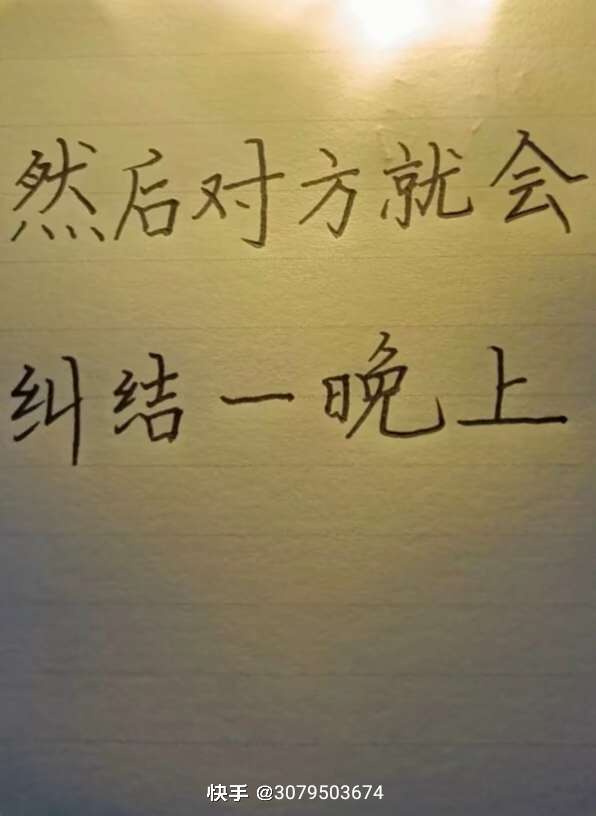 然后对方就会
纠结一晚上
快手 @3079503674